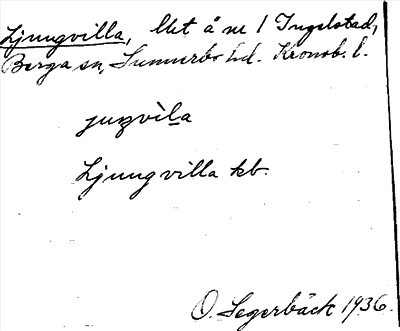 Ljungvilla, lht å nr 1 Ingelstad,
Berga sn, Sunnerbo hd. Kronob. l.
juŋvìla
Ljungvilla kb.
O. Segerbäck 1936.